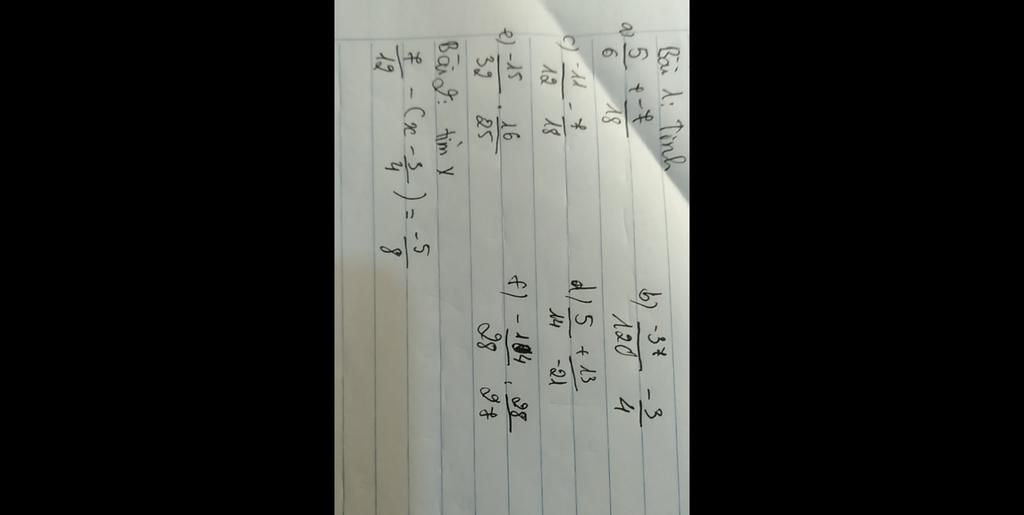 Bài 1: Tính
a) 5/6 + -7/18 b) -37/120 - 3/4
c) -11/12 - 7/18 d) 5/14 + 13/-21
e) -15/32 . 16/25 f) -14/28 : 28/27
Bài 2: tìm x
7/12 - (x - 3/4) = -5/8